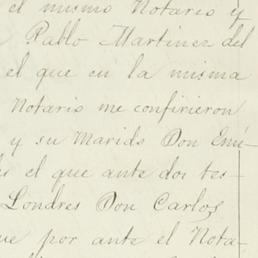 el mismo Notario y
Pablo Martinez del
el que en la misma
Notario me confirieron
y su Marido Don Emi-
es el que ante dos tes-
Londres Don Carlos
ue por ante el Nota-